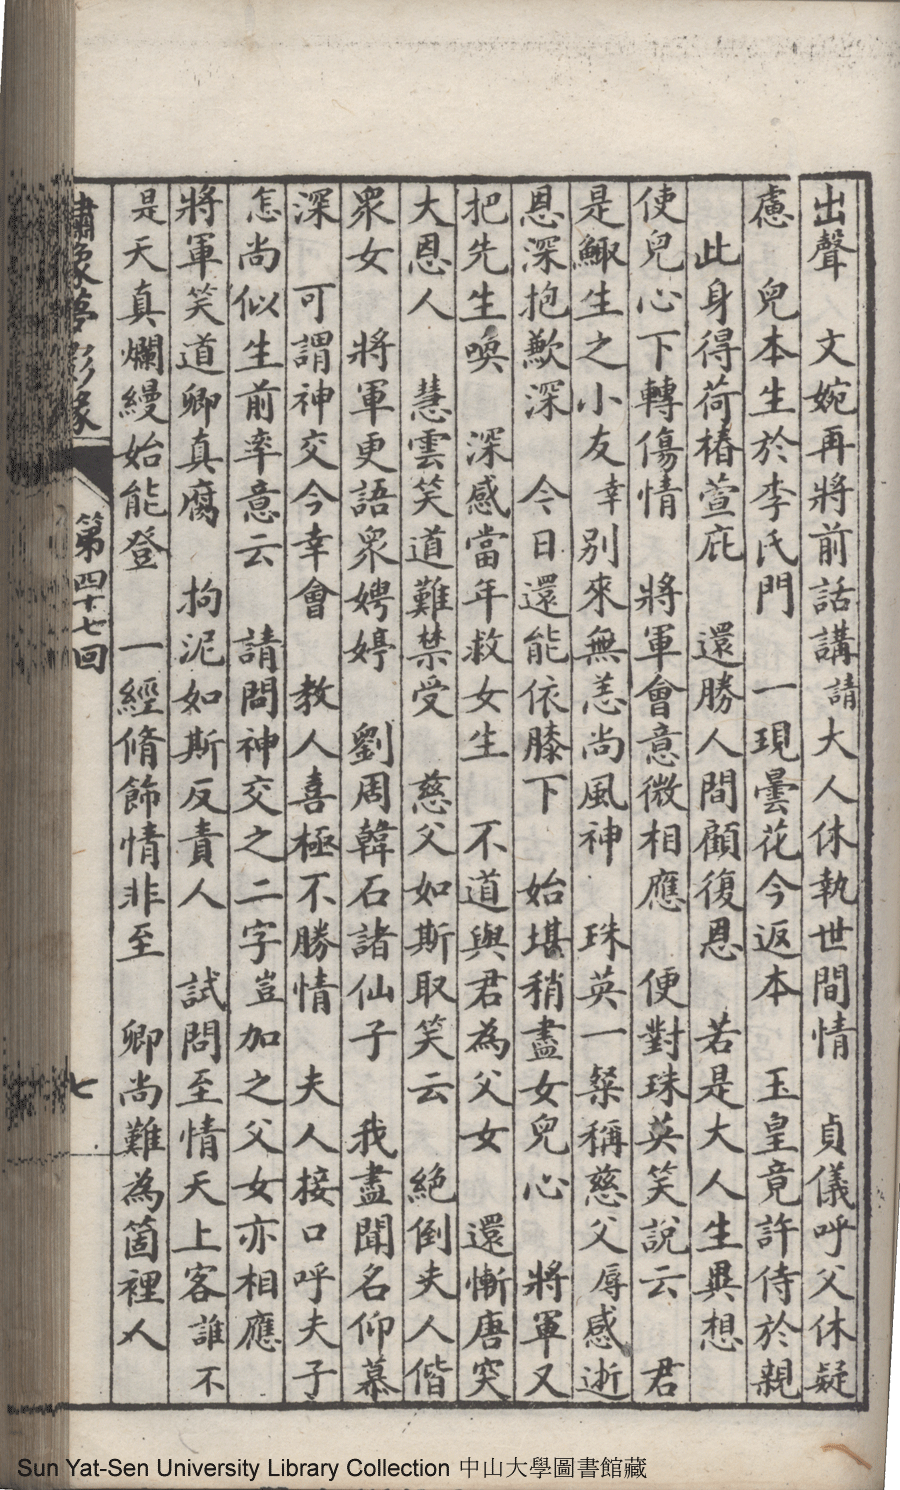 出聲　文婉再將前話講請大人休執世間情　貞儀呼父休疑
慮　兒本生於李氏門　一現曇花今返本　玉皇竟許侍於親
此身得荷椿萱庇　還勝人間顧復恩　若是大人生異想
使兒心下轉傷情　將軍會意微相應　便對珠英笑說云　君
是鯫生之小友幸別來無恙尚風神　珠英一粲稱慈父辱感逝
恩深抱歉深　今日還能依膝下　始堪稍盡女兒心　將軍又
把先生喚　深感當年救女生　不道與君為父女　還慚唐突
大恩人　慧雲笑道難禁受　慈父如斯取笑云　絕倒夫人偕
眾女　將軍更語眾娉婷　劉周韓石諸仙子　我盡聞名仰慕
深　可謂神交今幸會　教人喜極不勝情　夫人接口呼夫子
怎尚似生前率意云　請問神交之二字豈加之父女亦相應
將軍笑道卿真腐　拘泥如斯反責人　試問至情天上客誰不
是天真爛縵始能登　一經脩飾情非至　卿尚難為箇裡人
繡像夢影緣　第四十七回　七
Sun Yat-Sen University Library Collection 中山大學圖書館藏